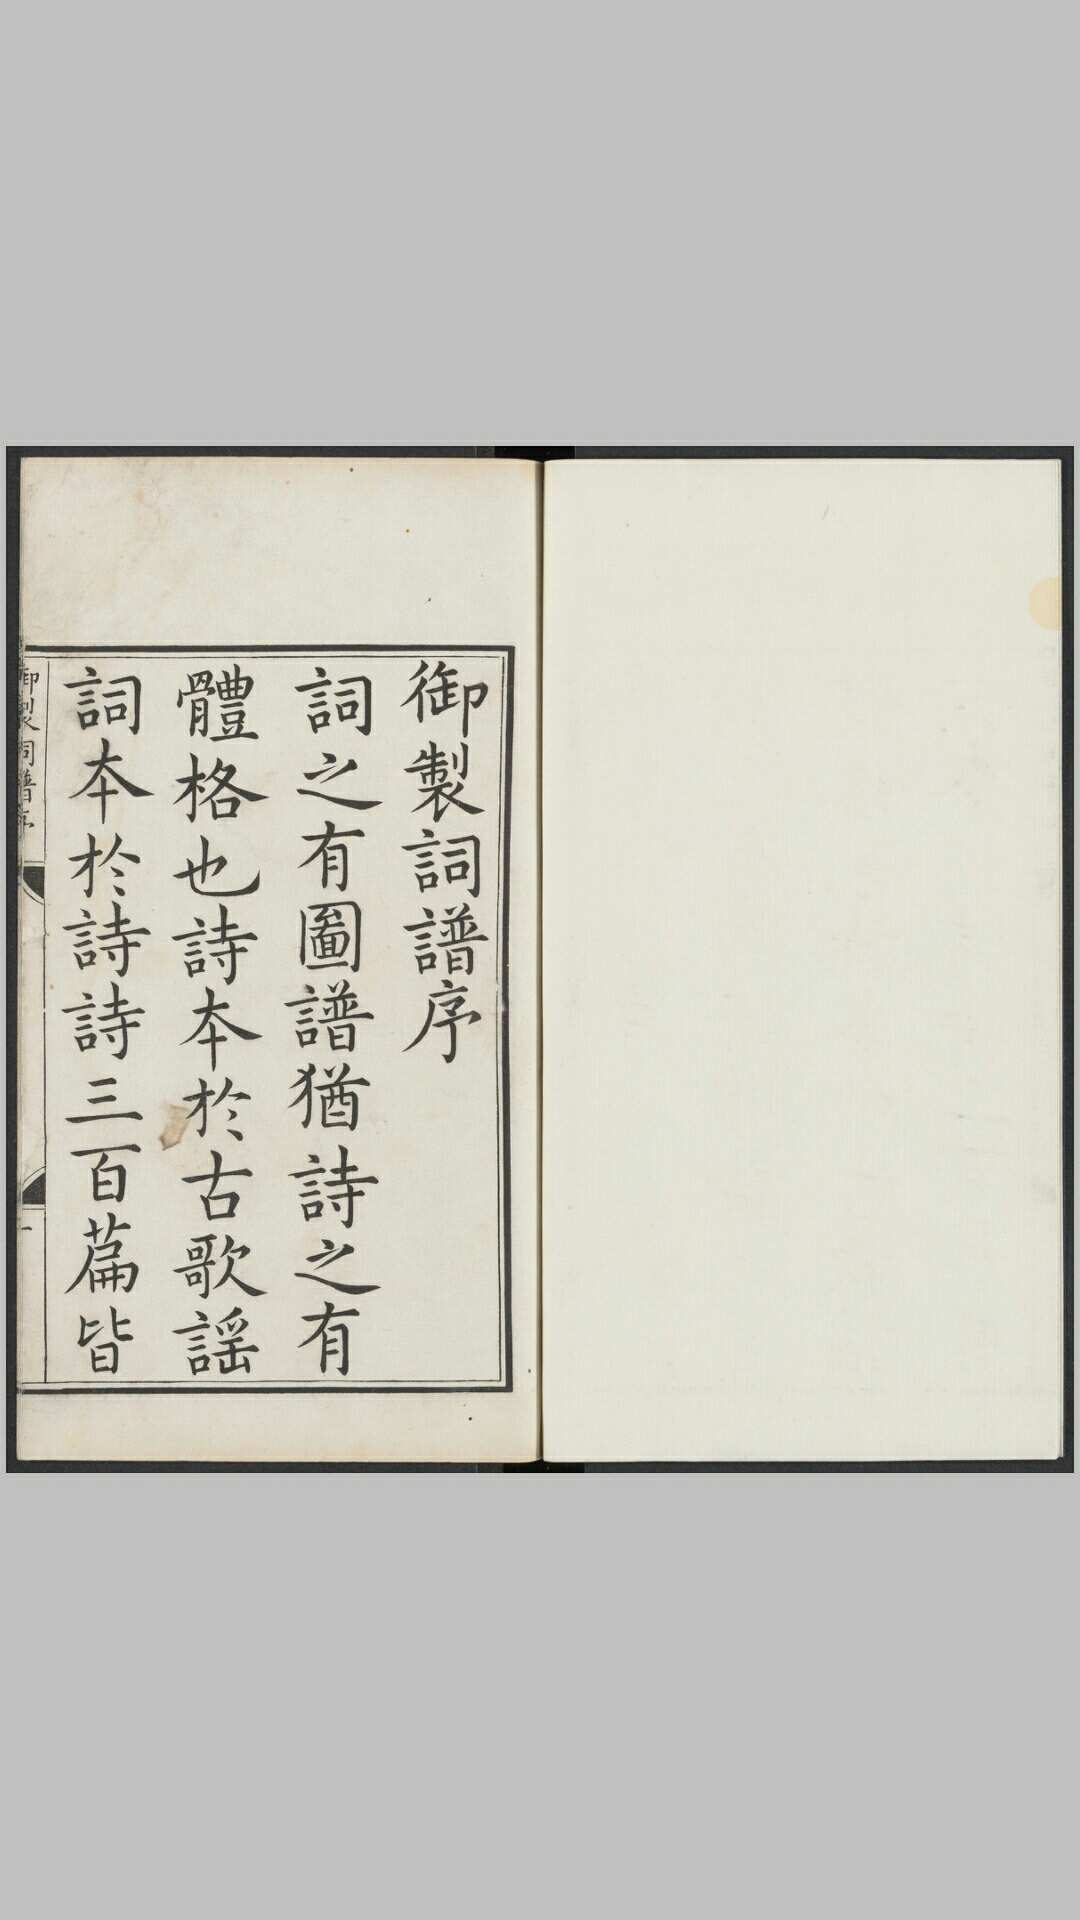 御製詞譜序
詞之有圖譜猶詩之有
體格也詩本於古歌謡
詞本於詩詩三百篇皆
御製詞譜序
一